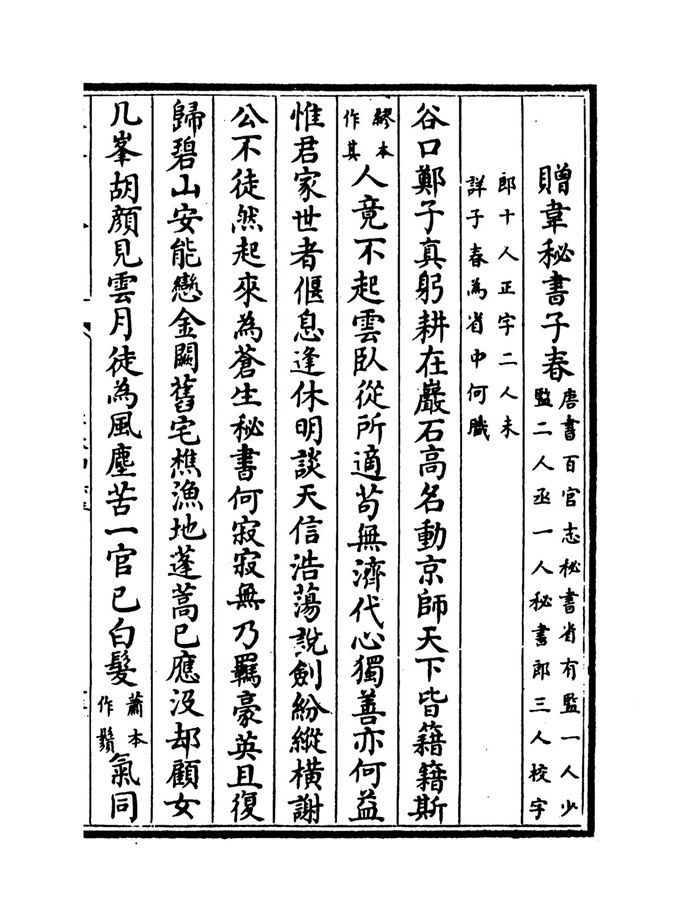 贈韋秘書子春唐書百官志秘書省有監一人少監二人丞一人秘書郎三人校字
郎十人正字二人未詳子春為省中何職
谷口鄭子真躬耕在巖石高名動京師天下皆籍籍斯
繆本作其人竟不起雲臥從所適茍無濟代心獨善亦何益
惟君家世者偃息逢休明談天信浩蕩說劍紛縱橫謝
公不徒然起來為蒼生秘書何寂寂無乃羈豪英且復
歸碧山安能戀金闕舊宅樵漁地蓬蒿已應没却顧女
几峯胡顔見雲月徒為風塵苦一官已白髮蕭本作鬚氣同